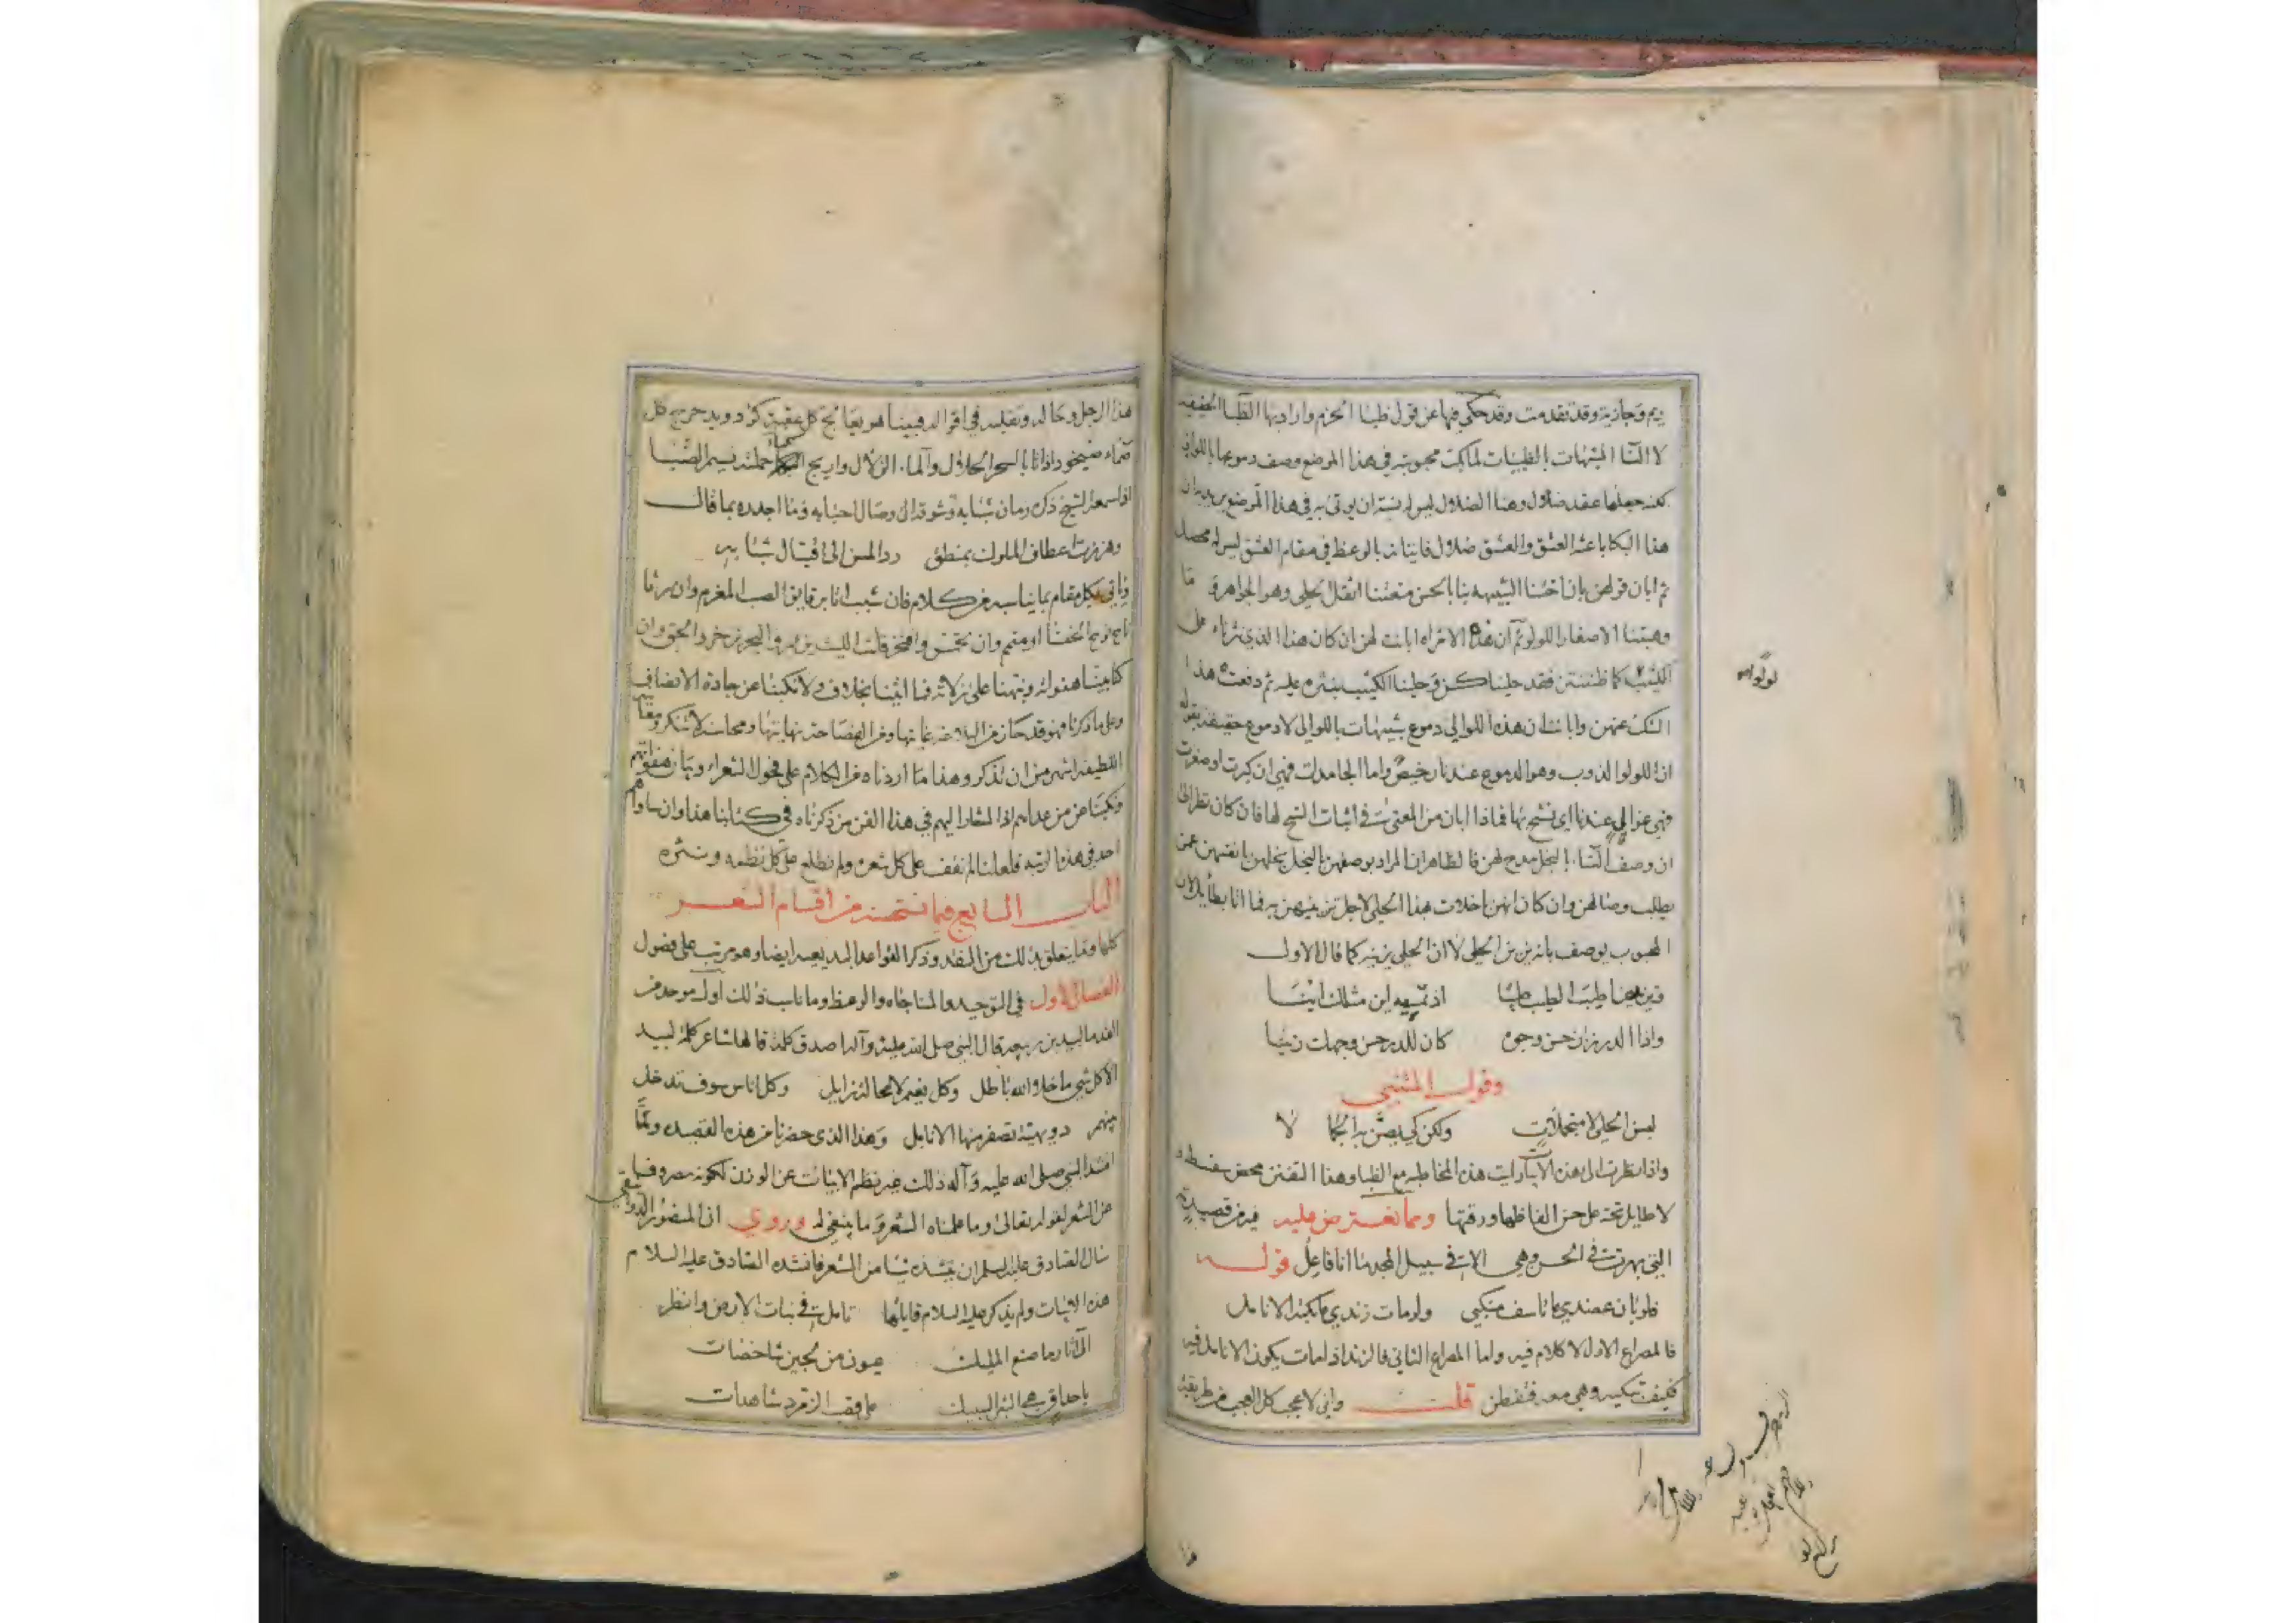 ريم وجازية وقد تقدمت وقد حكى فيها عن قول ظبا الحزم واراد بها الظبا الحقيقيه
لا النسا المشبهات بالظبيات لما بكت محبوبته في هذا الموضع وصف دموعها باللوالى
لكنه جعلها عقد ضلال وهنا الضلال ليس له نسبة ان يوتى به في هذا الموضع يريد ان
هذا البكا باعثه العشق والعشق ضلال فاتيانه بالوعظ في مقام العشق ليس له محصل
ثم ابان قولهن بان اختنا الشبيهه بنا بالحسن متعتنا اثقل الحلى وهو الجواهر وما
وهبتنا الاصغار اللولو ثم ان هذه الامراه ابانت لهن ان كان هذا الذي نثرناه على
الكثيب كما ظننتن فقد حلينا كن وحلينا الكثيب بنثره عليه ثم دفعت هذا
الشك عنهن وابانت ان هذه اللوالي دموع شبيهات باللوالي لا دموع حقيقه بقوله
ان اللولوا لذوب وهو الدموع عندنا رخيص واما الجامدات فهي ان كبرت او صغرت
فهي غوالي عندنا اى نشح بها فماذا ابان من المعنى في اثبات الشح لها فان كان نظر الى
ان وصف النسا بالبخل مدح لهن فالظاهر ان المراد بوصفهن بالبخل بخلهن بانفسهن عمن
يطلب وصالهن وان كان انهن باخلات بهذا الحلى لاجل تزينهن به فما اتا بطايل لان
المحبوب يوصف بانه يزين الحلى لا ان الحلى يزينه كما قال الاول
وتزيدين طيب الطيب طيبا اذ تمسيه اين مثلك اينا
واذا الدر زان حسن وجوه كان للدر حسن وجهك زينا
وقول المتنبي
لبسن الحلى لا متجملات ولكن كي يصن به الجمالا
واذا نظرت الى هذه الابيات رايت هذه المخاطبه مع الظبا وهذا التفنن محض سفسطه
لا طايل تحته على حسن الفاظها ورقتها ومما نعترض عليه فيه من قصيدته
التي بهرت في الحسن وهي الا في سبيل المجد ما انا فاعل قوله
فلو بان عضدي ما تاسف منكبي ولو مات زندي ما بكته الانامل
فالمصراع الاول لا كلام فيه واما المصراع الثاني فالزند اذا مات يكون الانامل فيه
فكيف تبكيه وهي معه فتفطن قلت واني لاعجب كل العجب من طريقة
لولوا
هذا الرجل وحاله وتقلبه في اقواله فبينا هو يعانج كل عقبة كؤد ويدحرج كل
صماء صيخود اذ اتانا بالسحر الحلال والماء الزلال واريج حملته نسيم الصبا
اذا سمعه الشيخ ذكره زمان شبابه وشوقه الى وصال احبابه وما اجدره بما قال
وهززت اعطاف الملوك بمنطق رد المسن الى اقتبال شبابه
ويأتي بكل مقام بما يناسبه من كلام فان شبب اتا برقايق الصب المغرم وان رثا
وان تحمس وافتخر قلت الليث يزمجر والبحر يزخر والحق وان
كنا بينا هفواته ونبهنا على زلاته فما اتينا بخلاف ولا نكبنا عن جادة الانصاف
وعلى ما ذكرنا فهو قد حاز من البلاغه غايتها ومن الفصاحة نهايتها ومحاسنه لا تنكر ومعانيه
اللطيفه اشهر من ان تذكر وهذا ما اردناه من الكلام على فحول الشعراء وبيان هفواتهم
ونكبنا عن من عداهم اذ المشار اليهم في هذا الفن من ذكرناه في كتابنا هذا وان ساواهم
احد في هذه الرتبه فلعلنا لم نقف على كل شعره ولم نطلع على كل نظمه ونثره
الباب السابع فيما نستحسنه من اقسام الشعر
كلها وما يتعلق بذلك من النقد وذكر القواعد البديعيه ايضا وهو مرتب على فصول
الفصل الاول في التوحيد والمناجاه والوعظ وما ناسب ذلك اول موحد من
القدما لبيد بن ربيعه قال النبي صلى الله عليه وآله اصدق كلمة قالها شاعر كلمة لبيد
الا كل شي ما خلا الله باطل وكل نعيم لا محالة زايل وكل اناس سوف تدخل
بينهم دويهية تصفر منها الانامل وهذا الذي حضرنا من هذه القصيده ولما
انشد النبي صلى الله عليه وآله ذلك غير نظم الابيات عن الوزن لكونه مصروفا
عن الشعر لقوله تعالى وما علمناه الشعر وما ينبغي له وروي ان المنصور الدوانيقي
سال الصادق عليه السلام ان ينشده شيا من الشعر فانشده الصادق عليه السلام
هذه الابيات ولم يذكر عليه السلام قايلها تامل في نبات الارض وانظر
الى اثار ما صنع المليك عيون من لجين شاخصات
باحداق هي الذهب السبيك على قضب الزمرد شاهدات